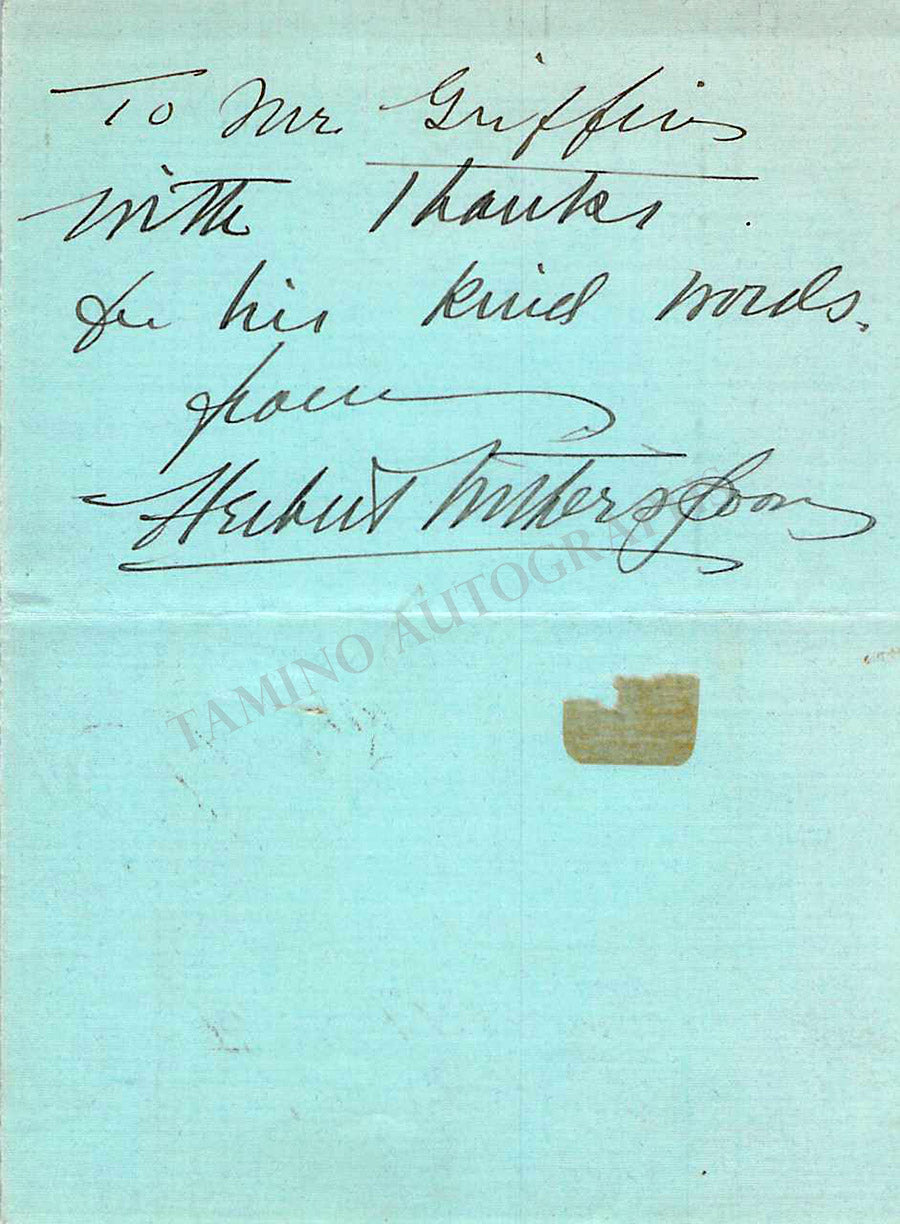 To Mr. Griffin
with Thanks.
for his kind words.
from
Herbert Witherspoon
TAMINO AUTOGRAPHS